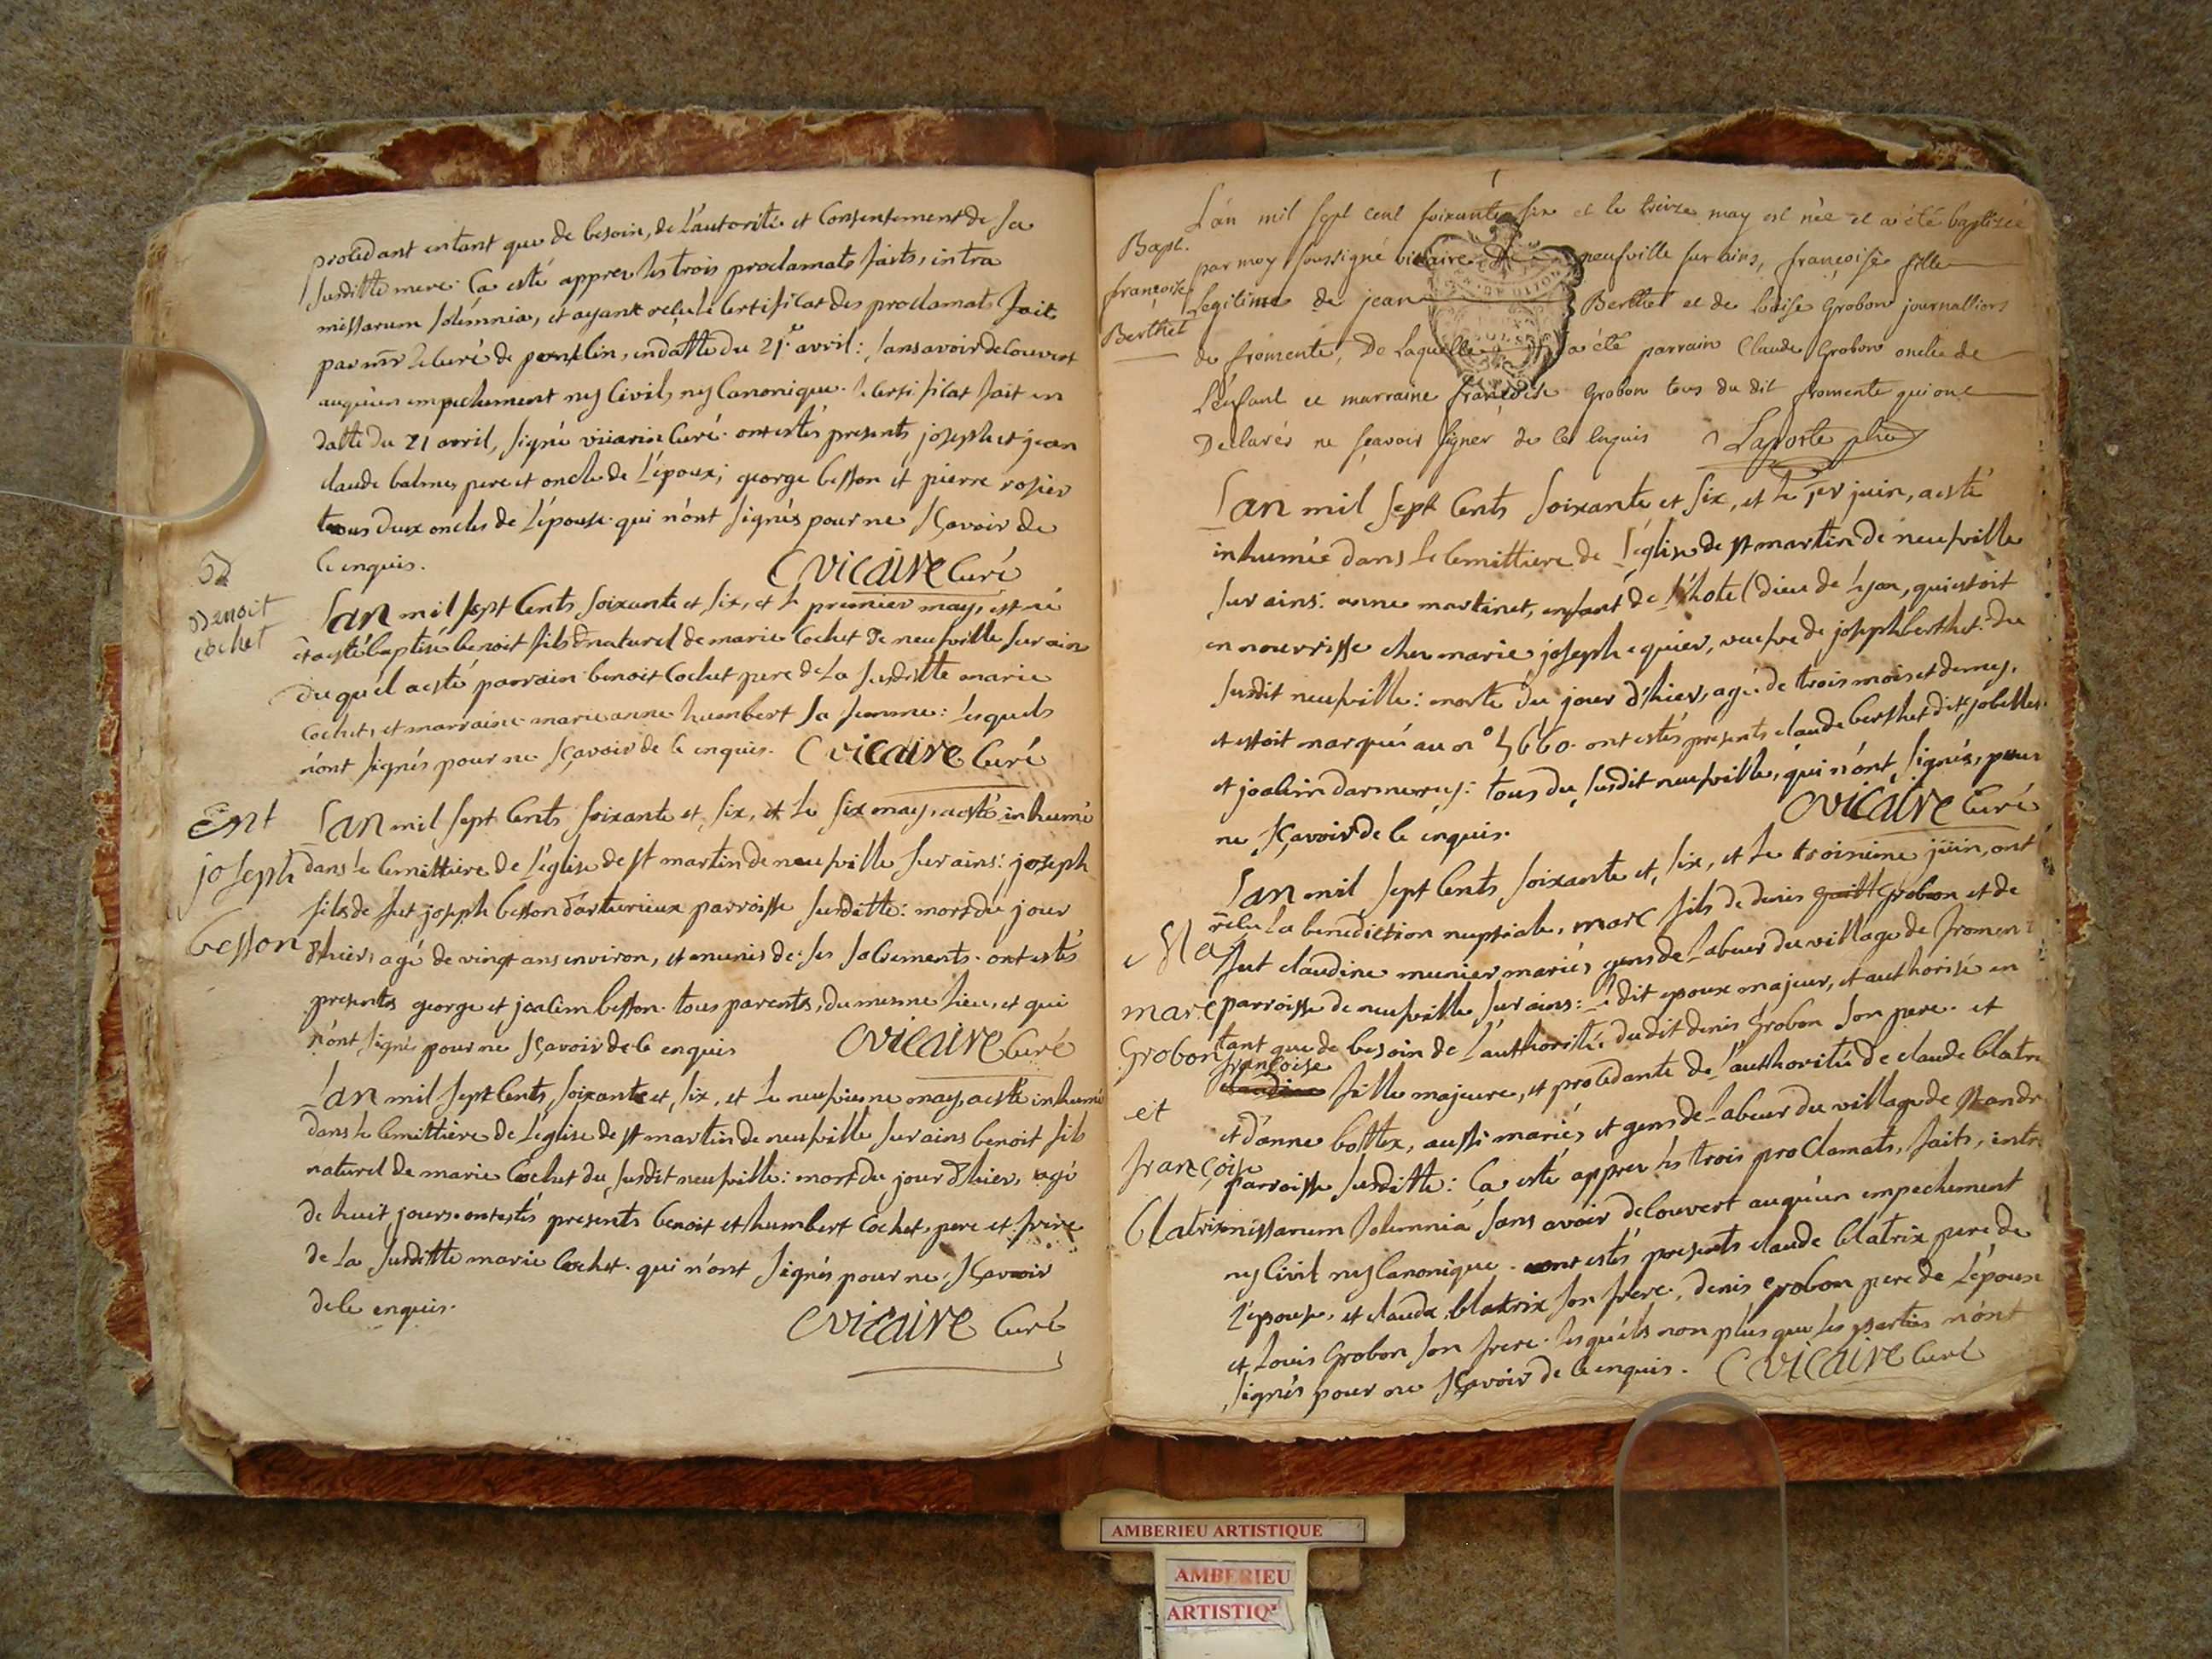 procedant entant que de besoin, de l'autorité et consentement de sa
susditte mere. Ça esté appres les trois proclamats faits, intra
missarum solemnia, et ayant reçu le certificat des proclamats fait
par mr le curé de
en datte du 21e avril: sans avoir decouvert
auqu'un empechement ny civil, ny canonique. le certificat fait en
datte du 21 avril, signé curé. ont estés presents joseph et jean
claude balme, pere et oncle de l'époux; george besson et pierre rosier
tous deux oncles de l'épouse. qui n'ont signés pour ne sçavoir de
ce enquis. C vicaire curé
B
Benoit
cochet
L'an mil sept cents soixante et six, et le premier may, est né
et a esté baptisé benoit fils naturel de marie cochet de neufville sur ain
du quel a esté parrain benoit cochet pere de la susditte marie
cochet, et marraine marie anne humbert sa femme: lesquels
n'ont signés pour ne sçavoir de ce enquis. C vicaire curé
Ent
joseph
besson
L'an mil sept cents soixante et six, et le six may, a esté inhumé
dans le cemittiere de l'église de st martin de neufville sur ains: joseph
fils de fut joseph besson d'arturieux parroisse susditte: mort du jour
d'hier, agé de vingt ans environ, et munis de ses sacrements. ont estés
presents george et joachim besson. tous parents, du mesme lieu, et qui
n'ont signé pour ne sçavoir de ce enquis C vicaire curé
L'an mil sept cents soixante et six, et le neufvieme may, a esté inhumé
dans le cemittiere de l'église de st martin de neufville sur ains benoit fils
naturel de marie cochet du susdit neufville: mort du jour d'hier, agé
de huit jours. ont estés presents benoit et humbert cochet, pere et frere
de la susditte marie cochet. qui n'ont signés pour ne sçavoir
de ce enquis.
C vicaire curé
Bapt.
françoise
Berthet
L'an mil sept cent soixante six et le treize may est née et a été baptisée
par moy soussigné vicaire de neufville sur ains, françoise fille
legitime de jean Berthet et de Louise Grobon journalliers
de fromente, De laquelle a été parrain Claude Grobon oncle de
L'enfant et marraine françoise Grobon tous du dit fromente qui ont
Declarés ne sçavoir signer de ce enquis Laporte ptre
L'an mil sept cents soixante et six, et le 1er juin, a esté
inhumée dans le cemittiere de l'église de st martin de neufville
sur ains: anne martinet, enfant de l'hotel dieu de Lyon, qui estoit
en nourrisse chez marie joseph equier, veufve de joseph berthet. du
susdit neufville: morte du jour d'hier, agé de trois mois et demy,
et estoit marqué au no 5660. ont estés presents claude berthet dit jobelles
et joachim darmerey: tous du susdit neufville, qui n'ont signés, pour
ne sçavoir de ce enquis. C vicaire curé
Ma
marc
Grobon
et
françoise
Blatrix
L'an mil sept cents soixante et six, et le troisieme juin, ont
reçu la benediction nuptiale, marc fils de denis Grobon et de
fut claudine munier mariés gens de labeur du village de froment
parroisse de neufville sur ains: le dit epoux majeur, et authorisé en
tant que de besoin de l'authorité dudit denis Grobon son pere. et
françoise
claudine fille majeure, et procedante de l'authorité de claude blatrix
et d'anne bottex, aussi mariés et gens de labeur du village de st andré
parroisse susditte: Ça esté appres les trois proclamats, faits, intra
missarum solemnia sans avoir decouvert auqu'un empechement
ny civil ny canonique. ont estés presents claude blatrix pere de
l'epouse, et claude blatrix son frere, denis Grobon pere de l'époux
et Louis Grobon son frere. lesquels non plus que les parties n'ont
signés pour ne sçavoir de ce enquis. C vicaire curé
AMBERIEU ARTISTIQUE
AMBERIEU
ARTISTIQ